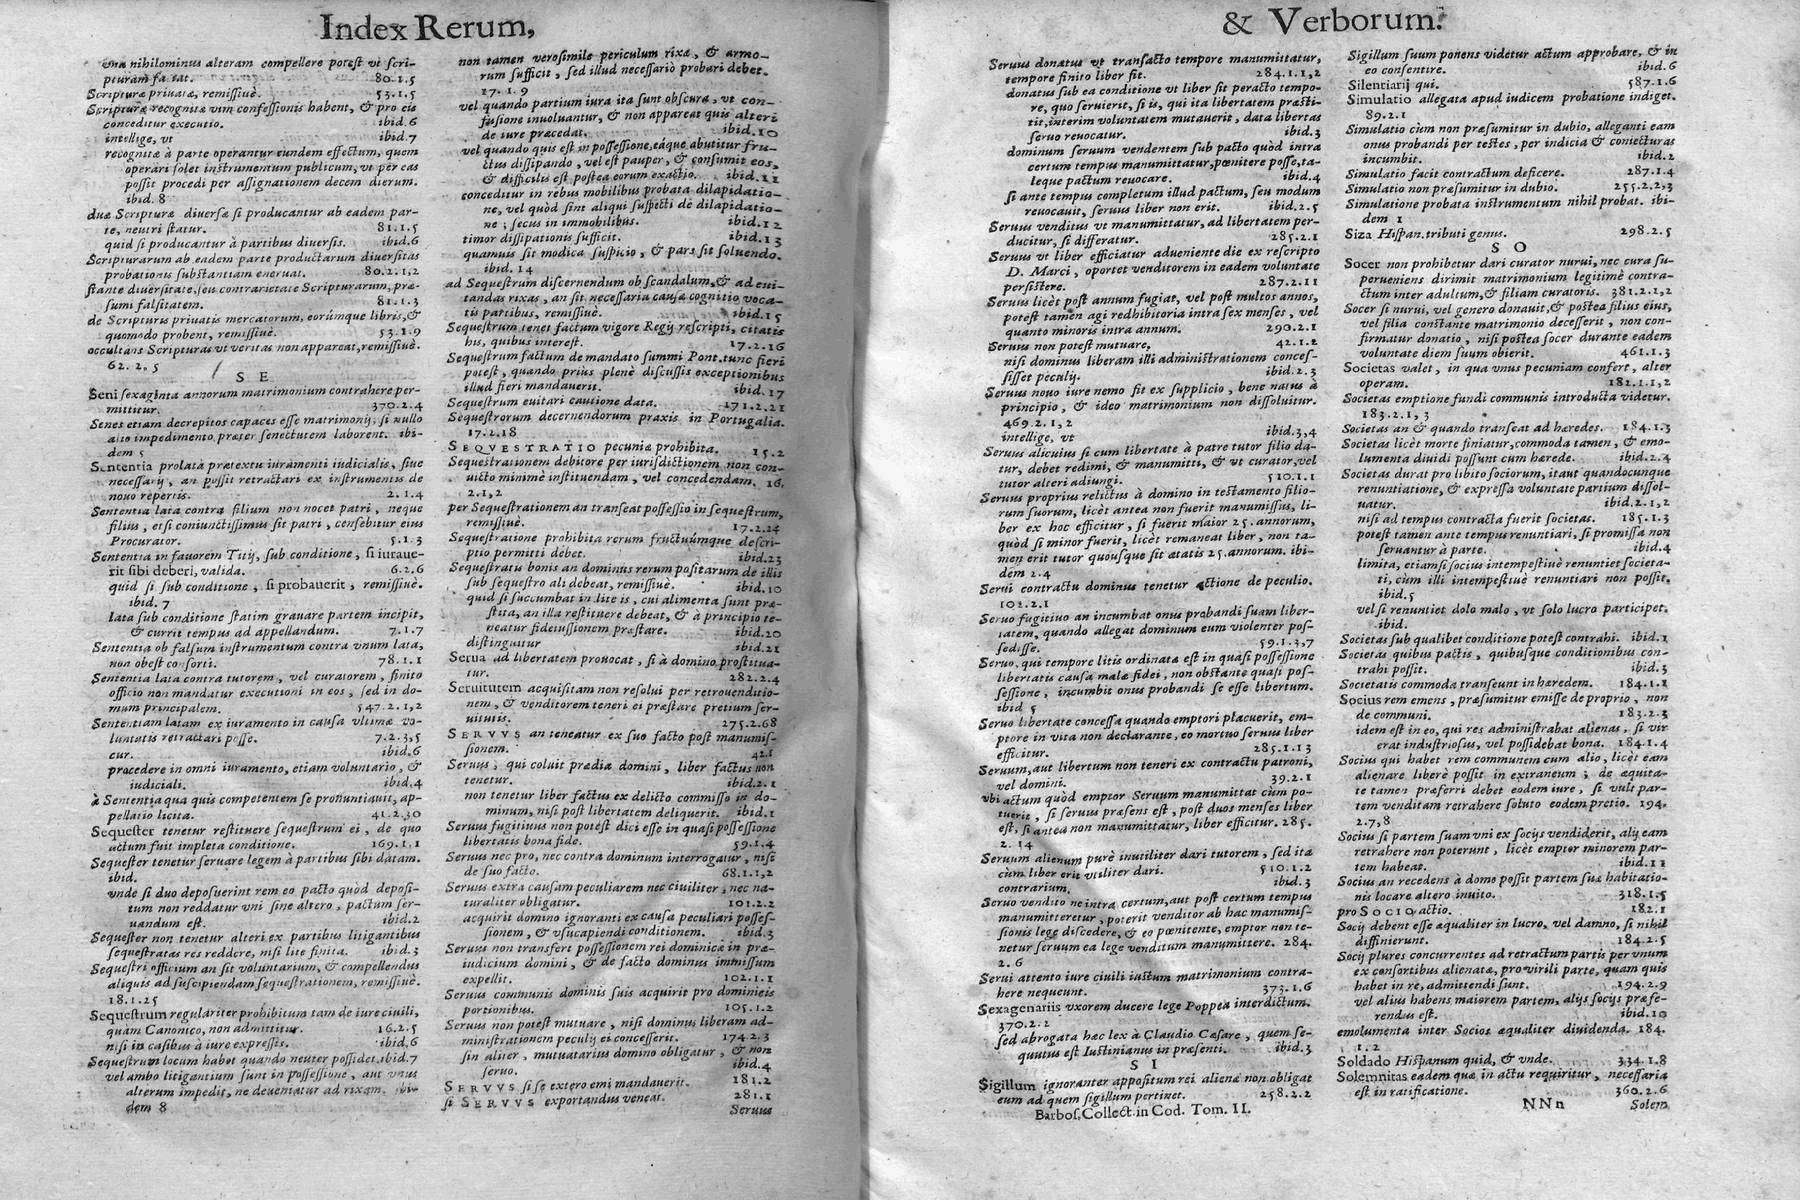 Index Rerum,
vna nihilominus alteram compellere potest vt scri-
pturam fa tat. 80.1.5
Scripturæ priuatæ, remissiuè. 53.1.5
Scripturæ recognitæ vim confessionis habent, & pro eis
conceditur executio. ibid.6
intellige, vt ibid.7
recognitæ à parte operantur eundem effectum, quem
operari solet instrumentum publicum, vt per eas
possit procedi per assignationem decem dierum.
ibid. 8
duæ Scripturæ diuersæ si producantur ab eadem par-
te, neutri statur. 81.1.5
quid si producantur à partibus diuersis. ibid.6
Scripturarum ab eadem parte productarum diuersitas
probationis substantiam eneruat. 80.2.1,2
stante diuersitate, seu contrarietate Scripturarum, præ-
sumi falsitatem. 81.1.3
de Scripturis priuatis mercatorum, eorúmque libris, &
quomodo probent, remissiuè. 53.1.9
occultans Scripturas vt veritas non appareat, remissiuè.
62.2.5
S E
Seni sexaginta annorum matrimonium contrahere per-
mittitur. 370.2.4
Senes etiam decrepitos capaces esse matrimonij, si nullo
alio impedimento præter senectutem laborent. ibi-
dem 5
Sententia prolata prætextu iuramenti iudicialis, siue
necessarij, an possit retractari ex instrumentis de
nouo repertis. 2.1.4
Sententia lata contra filium non nocet patri, neque
filius, etsi coniunctissimus sit patri, censebitur eius
Procurator. 5.1.3
Sententia in fauorem Titij, sub conditione, si iuraue-
rit sibi deberi, valida. 6.2.6
quid si sub conditione, si probauerit, remissiuè.
ibid. 7
lata sub conditione statim grauare partem incipit,
& currit tempus ad appellandum. 7.1.7
Sententia ob falsum instrumentum contra vnum lata,
non obest consorti. 78.1.1
Sententia lata contra tutorem, vel curatorem, finito
officio non mandatur executioni in eos, sed in do-
mum principalem. 547.2.1,2
Sententiam latam ex iuramento in causa vltimæ vo-
luntatis retractari posse. 7.2.3,5
cur. ibid.6
procedere in omni iuramento, etiam voluntario, &
iudiciali. ibid.4
à Sententia qua quis competentem se pronuntiauit, ap-
pellatio licita. 41.2.30
Sequester tenetur restituere sequestrum ei, de quo
actum fuit impleta conditione. 169.1.1
Sequester tenetur seruare legem à partibus sibi datam.
ibid.
vnde si duo deposuerint rem eo pacto quòd deposi-
tum non reddatur vni sine altero, pactum ser-
uandum est. ibid.2
Sequester non tenetur alteri ex partibus litigantibus
sequestratas res reddere, nisi lite finita. ibid.3
Sequestri officium an sit voluntarium, & compellendus
aliquis ad suscipiendam sequestrationem, remissiuè.
18.1.25
Sequestrum regulariter prohibitum tam de iure ciuili,
quàm Canonico, non admittitur. 16.2.5
nisi in casibus à iure expressis. ibid.6
Sequestrum locum habet quando neuter possidet. ibid.7
vel ambo litigantium sunt in possessione, aut vnus
alterum impedit, ne deueniatur ad rixam. ibi-
dem 8
non tamen verosimile periculum rixæ, & armo-
rum sufficit, sed illud necessariò probari debet.
17.1.9
vel quando partium iura ita sunt obscura, vt con-
fusione inuoluantur, & non appareat quis alteri
de iure præcedat. ibid.10
vel quando quis est in possessione, eáque abutitur fru-
ctus dissipando, vel est pauper, & consumit eos,
& difficilis est postea eorum exactio. ibid.11
conceditur in rebus mobilibus probata dilapidatio-
ne, vel quòd sint aliqui suspecti de dilapidatio-
ne; secus in immobilibus. ibid.12
timor dissipationis sufficit. ibid.13
quamuis sit modica suspicio, & pars sit soluendo.
ibid. 14
ad Sequestrum discernendum ob scandalum, & ad eui-
tandas rixas, an sit necessaria causæ cognitio voca-
tis partibus, remissiuè. ibid.15
Sequestrum tenet factum vigore Regij rescripti, citatis
his, quibus interest. 17.2.16
Sequestrum factum de mandato summi Pont. tunc fieri
potest, quando prius plenè discussis exceptionibus
illud fieri mandauerit. ibid.17
Sequestrum euitari cautione data. 171.2.21
Sequestrorum decernendorum praxis in Portugalia.
17.2.18
SEQVESTRATIO pecuniæ prohibita. 15.2
Sequestrationem debitore per iurisdictionem non con-
uicto minimè instituendam, vel concedendam. 16.
2.1,2
per Sequestrationem an transeat possessio in sequestrum,
remissiuè. 17.2.24
Sequestratione prohibita rerum fructuúmque descri-
ptio permitti debet. ibid.23
Sequestratis bonis an dominus rerum positarum de illis
sub sequestro ali debeat, remissiuè. ibid.10
quid si succumbat in lite is, cui alimenta sunt præ-
stita, an illa restituere debeat, & à principio te-
neatur fideiussionem præstare. ibid.20
distinguitur ibid.21
Serua ad libertatem prouocat, si à domino prostitua-
tur. 282.2.4
Seruitutem acquisitam non resolui per retrouenditio-
nem, & venditorem teneri ei præstare pretium ser-
uitutis. 275.2.68
SERVVS an teneatur ex suo facto post manumis-
sionem. 42.1
Seruus, qui coluit prædia domini, liber factus non
tenetur. ibid.2.1
non tenetur liber factus ex delicto commisso in do-
minum, nisi post libertatem deliquerit. ibid.1
Seruus fugitiuus non potest dici esse in quasi possessione
libertatis bona fide. 59.1.4
Seruus nec pro, nec contra dominum interrogatur, nisi
de suo facto. 68.1.1,2
Seruus extra causam peculiarem nec ciuiliter, nec na-
turaliter obligatur. 101.2.2
acquirit domino ignoranti ex causa peculiari posses-
sionem, & vsucapiendi conditionem. ibid.3
Seruus non transfert possessionem rei dominicæ in præ-
iudicium domini, & de facto dominus immissum
expellit. 102.1.1
Seruus communis dominis suis acquirit pro dominicis
portionibus. 105.1.2
Seruus non potest mutuare, nisi dominus liberam ad-
ministrationem peculij ei concesserit. 174.2.3
sin aliter, mutuatarius domino obligatur, & non
seruo. ibid.4
SERVVS si se extero emi mandauerit. 181.2
si SERVVS exportandus veneat. 281.1
Seruus
& Verborum.
Seruus donatus vt transacto tempore manumittatur,
tempore finito liber fit. 284.1.1,2
donatus sub ea conditione vt liber sit peracto tempo-
re, quo seruierit, si is, qui ita libertatem præsti-
tit, interim voluntatem mutauerit, data libertas
seruo reuocatur. ibid.3
dominum seruum vendentem sub pacto quòd intra
certum tempus manumittatur, pœnitere posse, ta-
leque pactum reuocare. ibid.4
si ante tempus completum illud pactum, seu modum
reuocauit, seruus liber non erit. ibid.2.5
Seruus venditus vt manumittatur, ad libertatem per-
ducitur, si differatur. 285.2.1
Seruus vt liber efficiatur adueniente die ex rescripto
D. Marci, oportet venditorem in eadem voluntate
persistere. 287.2.11
Seruus licèt post annum fugiat, vel post multos annos,
potest tamen agi redhibitoria intra sex menses, vel
quanto minoris intra annum. 290.2.1
Seruus non potest mutuare, 42.1.2
nisi dominus liberam illi administrationem conces-
sisset peculij. ibid.2.3
Seruus nouo iure nemo fit ex supplicio, bene natus à
principio, & ideo matrimonium non dissoluitur.
469.2.1,2
intellige, vt ibid.3,4
Seruus alicuius si cum libertate à patre tutor filio da-
tur, debet redimi, & manumitti, & vt curator, vel
tutor alteri adiungi. 510.1.1
Seruus proprius relictus à domino in testamento filio-
rum suorum, licèt antea non fuerit manumissus, li-
ber ex hoc efficitur, si fuerit maior 25. annorum,
quòd si minor fuerit, licèt remaneat liber, non ta-
men erit tutor quousque sit ætatis 25. annorum. ibi-
dem 2.4
Serui contractu dominus tenetur actione de peculio.
101.2.1
Seruo fugitiuo an incumbat onus probandi suam liber-
tatem, quando allegat dominum eum violenter pos-
sedisse. 59.1.3,7
Seruo, qui tempore litis ordinatæ est in quasi possessione
libertatis causa malæ fidei, non obstante quasi pos-
sessione, incumbit onus probandi se esse libertum.
ibid 5
Seruo libertate concessa quando emptori placuerit, em-
ptore in vita non declarante, eo mortuo seruus liber
efficitur. 285.1.13
Seruum, aut libertum non teneri ex contractu patroni,
vel domini. 39.2.1
vbi actum quòd emptor Seruum manumittat cùm po-
tuerit, si seruus præsens est, post duos menses liber
est, si antea non manumittatur, liber efficitur. 285.
2. 14
Seruum alienum purè inutiliter dari tutorem, sed ita
cùm liber erit vtiliter dari. 510.1.2
contrarium. ibid.3
Seruo vendito ne intra certum, aut post certum tempus
manumitteretur, poterit venditor ab hac manumis-
sionis lege discedere, & eo pœnitente, emptor non te-
netur seruum ea lege venditum manumittere. 284.
2. 6
Serui attento iure ciuili iustum matrimonium contra-
here nequeunt. 373.1.6
Sexagenariis vxorem ducere lege Poppea interdictum.
370.2.2
sed abrogata hæc lex à Claudio Cæsare, quem se-
quutus est Iustinianus in præsenti. ibid.3
S I
Sigillum ignoranter appositum rei alienæ non obligat
eum ad quem sigillum pertinet. 258.2.2
Barbos. Collect. in Cod. Tom. II.
Sigillum suum ponens videtur actum approbare, & in
eo consentire. ibid.6
Silentiarij qui. 587.1.6
Simulatio allegata apud iudicem probatione indiget.
89.2.1
Simulatio cùm non præsumitur in dubio, alleganti eam
onus probandi per testes, per indicia & coniecturas
incumbit. ibid.2
Simulatio facit contractum deficere. 287.1.4
Simulatio non præsumitur in dubio. 255.2.2,3
Simulatione probata instrumentum nihil probat. ibi-
dem 1
Siza Hispan. tributi genus. 298.2.5
S O
Socer non prohibetur dari curator nurui, nec cura su-
perueniens dirimit matrimonium legitimè contra-
ctum inter adultum, & filiam curatoris. 381.2.1,2
Socer si nurui, vel genero donauit, & postea filius eius,
vel filia constante matrimonio decesserit, non con-
firmatur donatio, nisi postea socer durante eadem
voluntate diem suum obierit. 461.1.3
Societas valet, in qua vnus pecuniam confert, alter
operam. 182.1.1,2
Societas emptione fundi communis introducta videtur.
183.2.1, 3
Societas an & quando transeat ad hæredes. 184.1.3
Societas licèt morte finiatur, commoda tamen, & emo-
lumenta diuidi possunt cum hærede. ibid.2.4
Societas durat pro libito sociorum, itaut quandocunque
renuntiatione, & expressa voluntate partium dissol-
uatur. ibid.2.1,2
nisi ad tempus contracta fuerit societas. 185.1.3
potest tamen ante tempus renuntiari, si promissa non
seruantur à parte. ibid.4
limita, etiamsi socius intempestiuè renuntiet societa-
ti, cùm illi intempestiuè renuntiari non possit.
ibid.5
vel si renuntiet dolo malo, vt solo lucro participet.
ibid.
Societas sub qualibet conditione potest contrahi. ibid.1
Societas quibus pactis, quibusque conditionibus con-
trahi possit. ibid.3
Societatis commoda transeunt in hæredem. 184.1.1
Socius rem emens, præsumitur emisse de proprio, non
de communi. 183.2.3
idem est in eo, qui res administrabat alienas, si vir
erat industriosus, vel possidebat bona. 184.1.4
Socius qui habet rem communem cum alio, licèt eam
alienare liberè possit in extraneum; de æquita-
te tamen præferri debet eodem iure, si vult par-
tem venditam retrahere soluto eodem pretio. 194.
2.7,8
Socius si partem suam vni ex socijs vendiderit, alij eam
retrahere non poterunt, licèt emptor minorem par-
tem habeat. ibid.11
Socius an recedens à domo possit partem suæ habitatio-
nis locare altero inuito. 318.1.5
pro SOCIO actio. 182.1
Socij debent esse æqualiter in lucro, vel damno, si nihil
diffinierunt. 184.2.5
Socij plures concurrentes ad retractum partis per vnum
ex consortibus alienatæ, pro virili parte, quam quis
habet in re, admittendi sunt. 194.2.9
vel alius habens maiorem partem, alijs socijs præfe-
rendus est. ibid.10
emolumenta inter Socios æqualiter diuidenda. 184.
1. 2
Soldado Hispanum quid, & vnde. 334.1.8
Solemnitas eadem quæ in actu requiritur, necessaria
est in ratificatione. 360.2.6
NNn Solem